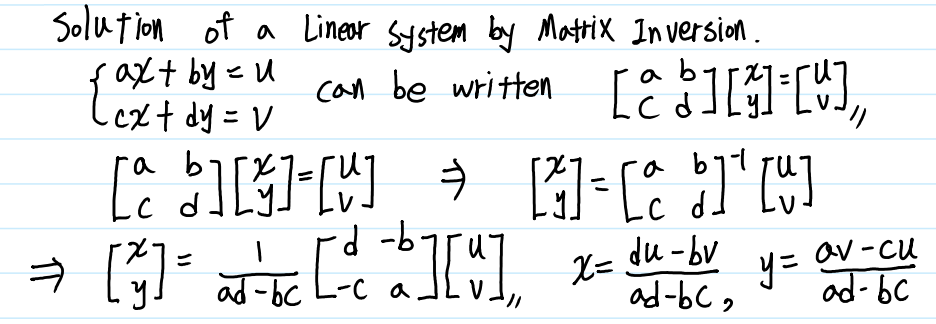 Solution of a Linear System by Matrix Inversion.
{ax + by = u can be written [a b; c d][x; y] = [u; v],,
{cx + dy = v
[a b; c d][x; y] = [u; v] ⇒ [x; y] = [a b; c d]^-1 [u; v]
⇒ [x; y] = 1/(ad-bc) [d -b; -c a][u; v],, x = (du-bv)/(ad-bc), y = (av-cu)/(ad-bc)